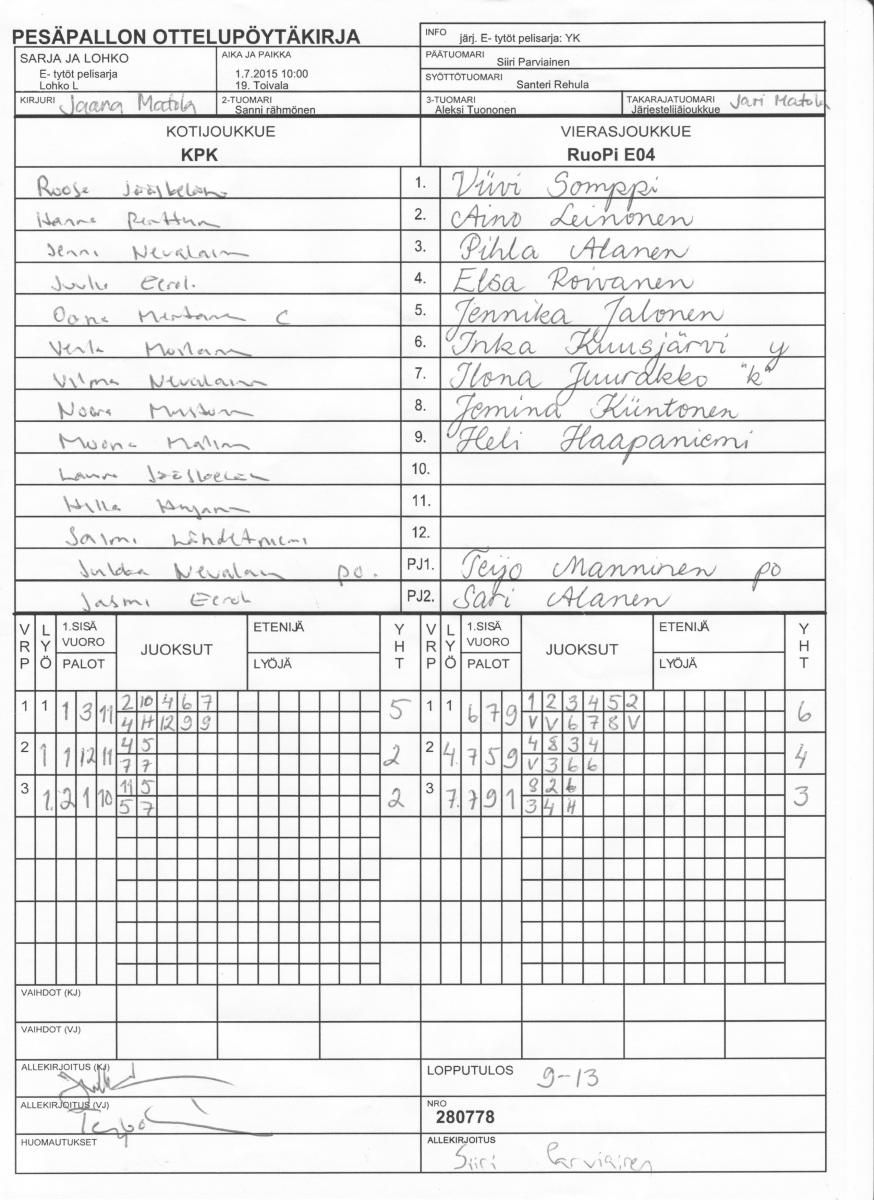 PESÄPALLON OTTELUPÖYTÄKIRJA
INFO järj. E- tytöt pelisarja: YK
SARJA JA LOHKO
E- tytöt pelisarja
Lohko L
AIKA JA PAIKKA
1.7.2015 10:00
19. Toivala
PÄÄTUOMARI
Siiri Parviainen
SYÖTTÖTUOMARI
Santeri Rehula
KIRJURI Jaana Matola
2-TUOMARI
Sanni rähmönen
3-TUOMARI
Aleksi Tuononen
TAKARAJATUOMARI Jari Matola
Järjestelijäjoukkue
KOTIJOUKKUE
KPK
VIERASJOUKKUE
RuoPi E04
Roosa Jääskeläinen 1. Viivi Somppi
Hanna 2. Aino Leinonen
Jenni Nevalainen 3. Pihla Alanen
4. Elsa Roivanen
Oona C 5. Jennika Jalonen
6. Inka Kuusjärvi y
Vilma Nevalainen 7. Ilona Juurakko "k"
Noora 8. Jemina Kiintonen
9. Heli Haapaniemi
Jääskeläinen 10.
11.
Salmi Lähdetniemi 12.
Jukka Nevalainen po. PJ1. Teijo Manninen po
Jasmi PJ2. Sari Alanen
VRP LYÖ 1.SISÄ VUORO PALOT JUOKSUT ETENIJÄ LYÖJÄ YHT VRP LYÖ 1.SISÄ VUORO PALOT JUOKSUT ETENIJÄ LYÖJÄ YHT
1 1 1 3 11 2 10 4 6 7 5 1 1 6 7 9 1 2 3 4 5 2 6
4 H 12 9 9 V V 6 7 8 V
2 1 1 12 11 4 5 2 2 4. 7 5 9 4 8 3 4 4
7 7 V 3 6 6
3 1. 2 1 10 11 5 2 3 7. 7 9 1 8 2 6 3
5 7 3 4 H
VAIHDOT (KJ)
VAIHDOT (VJ)
ALLEKIRJOITUS (KJ)
LOPPUTULOS 9-13
ALLEKIRJOITUS (VJ)
NRO
280778
HUOMAUTUKSET
ALLEKIRJOITUS
Siiri Parviainen